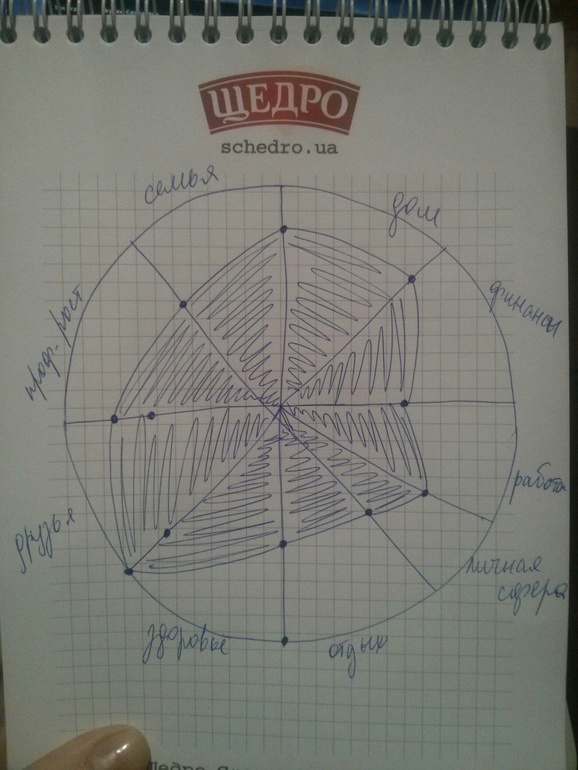 ЩЕДРО
schedro.ua
семья
дом
финансы
проф. рост
работа
друзья
личная
сфера
здоровье
отдых